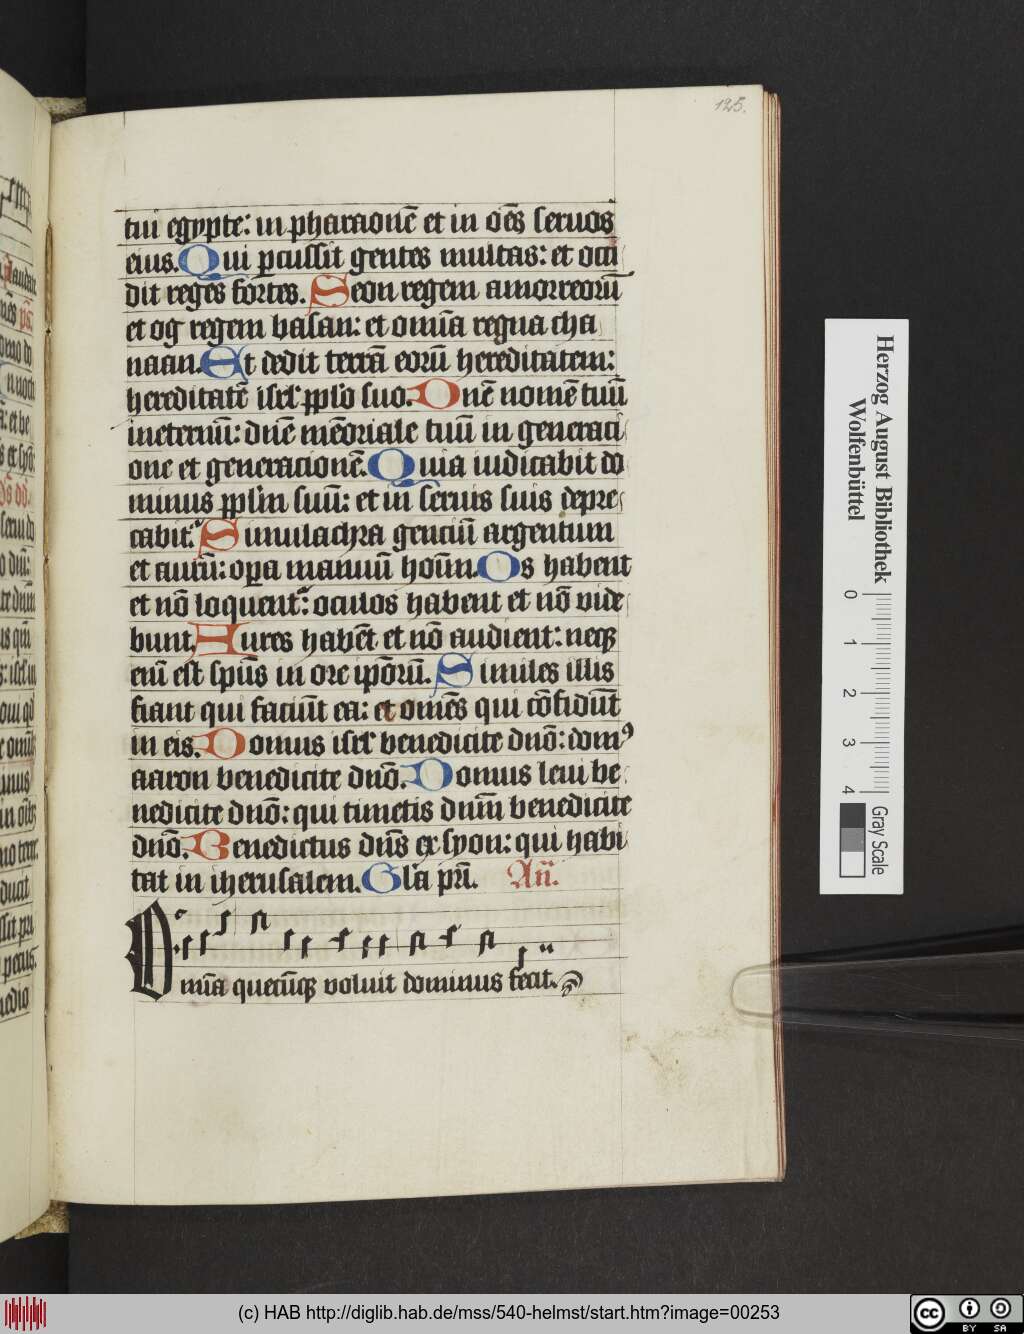 125.
tui egypte: in pharaonē et in oēs seruos
eius. Qui p̲cussit gentes multas: et occi
dit reges fortes. Seon regem amorreorū
et og regem basan: et omīa regna cha
naan. Et dedit terrā eorū hereditatem:
hereditatē isrl' pp̄lo suo. Dnē nomē tuū
ineternū: dnē mēoriale tuū in generaci
one et generacionē. Quia iudicabit do
minus pp̄lm suū: et in seruis suis depre
cabit᷑. Simulachra genciū argentum
et aurū: op̲a manuū hoīm. Os habent
et nō loquent᷑: oculos habent et nō vide
bunt. Aures habēt et nō audient: neqꝫ
enī est sp̄us in ore ip̄orū. Similes illis
fiant qui faciūt ea: et omēs qui cōfidūt
in eis. Domus isrl' benedicite dnō: domꝰ
aaron benedicite dnō. Domus leui be
nedicite dnō: qui timetis dnm̄ benedicite
dnō. Benedictus dn̄s ex syon: qui habi
tat in iherusalem. Glā pr̄i. An̄.
Omīa quecūqꝫ voluit dominus fecit.
Herzog August Bibliothek
Wolfenbüttel
0 1 2 3 4
Gray Scale
(c) HAB http://diglib.hab.de/mss/540-helmst/start.htm?image=00253
cc BY SA